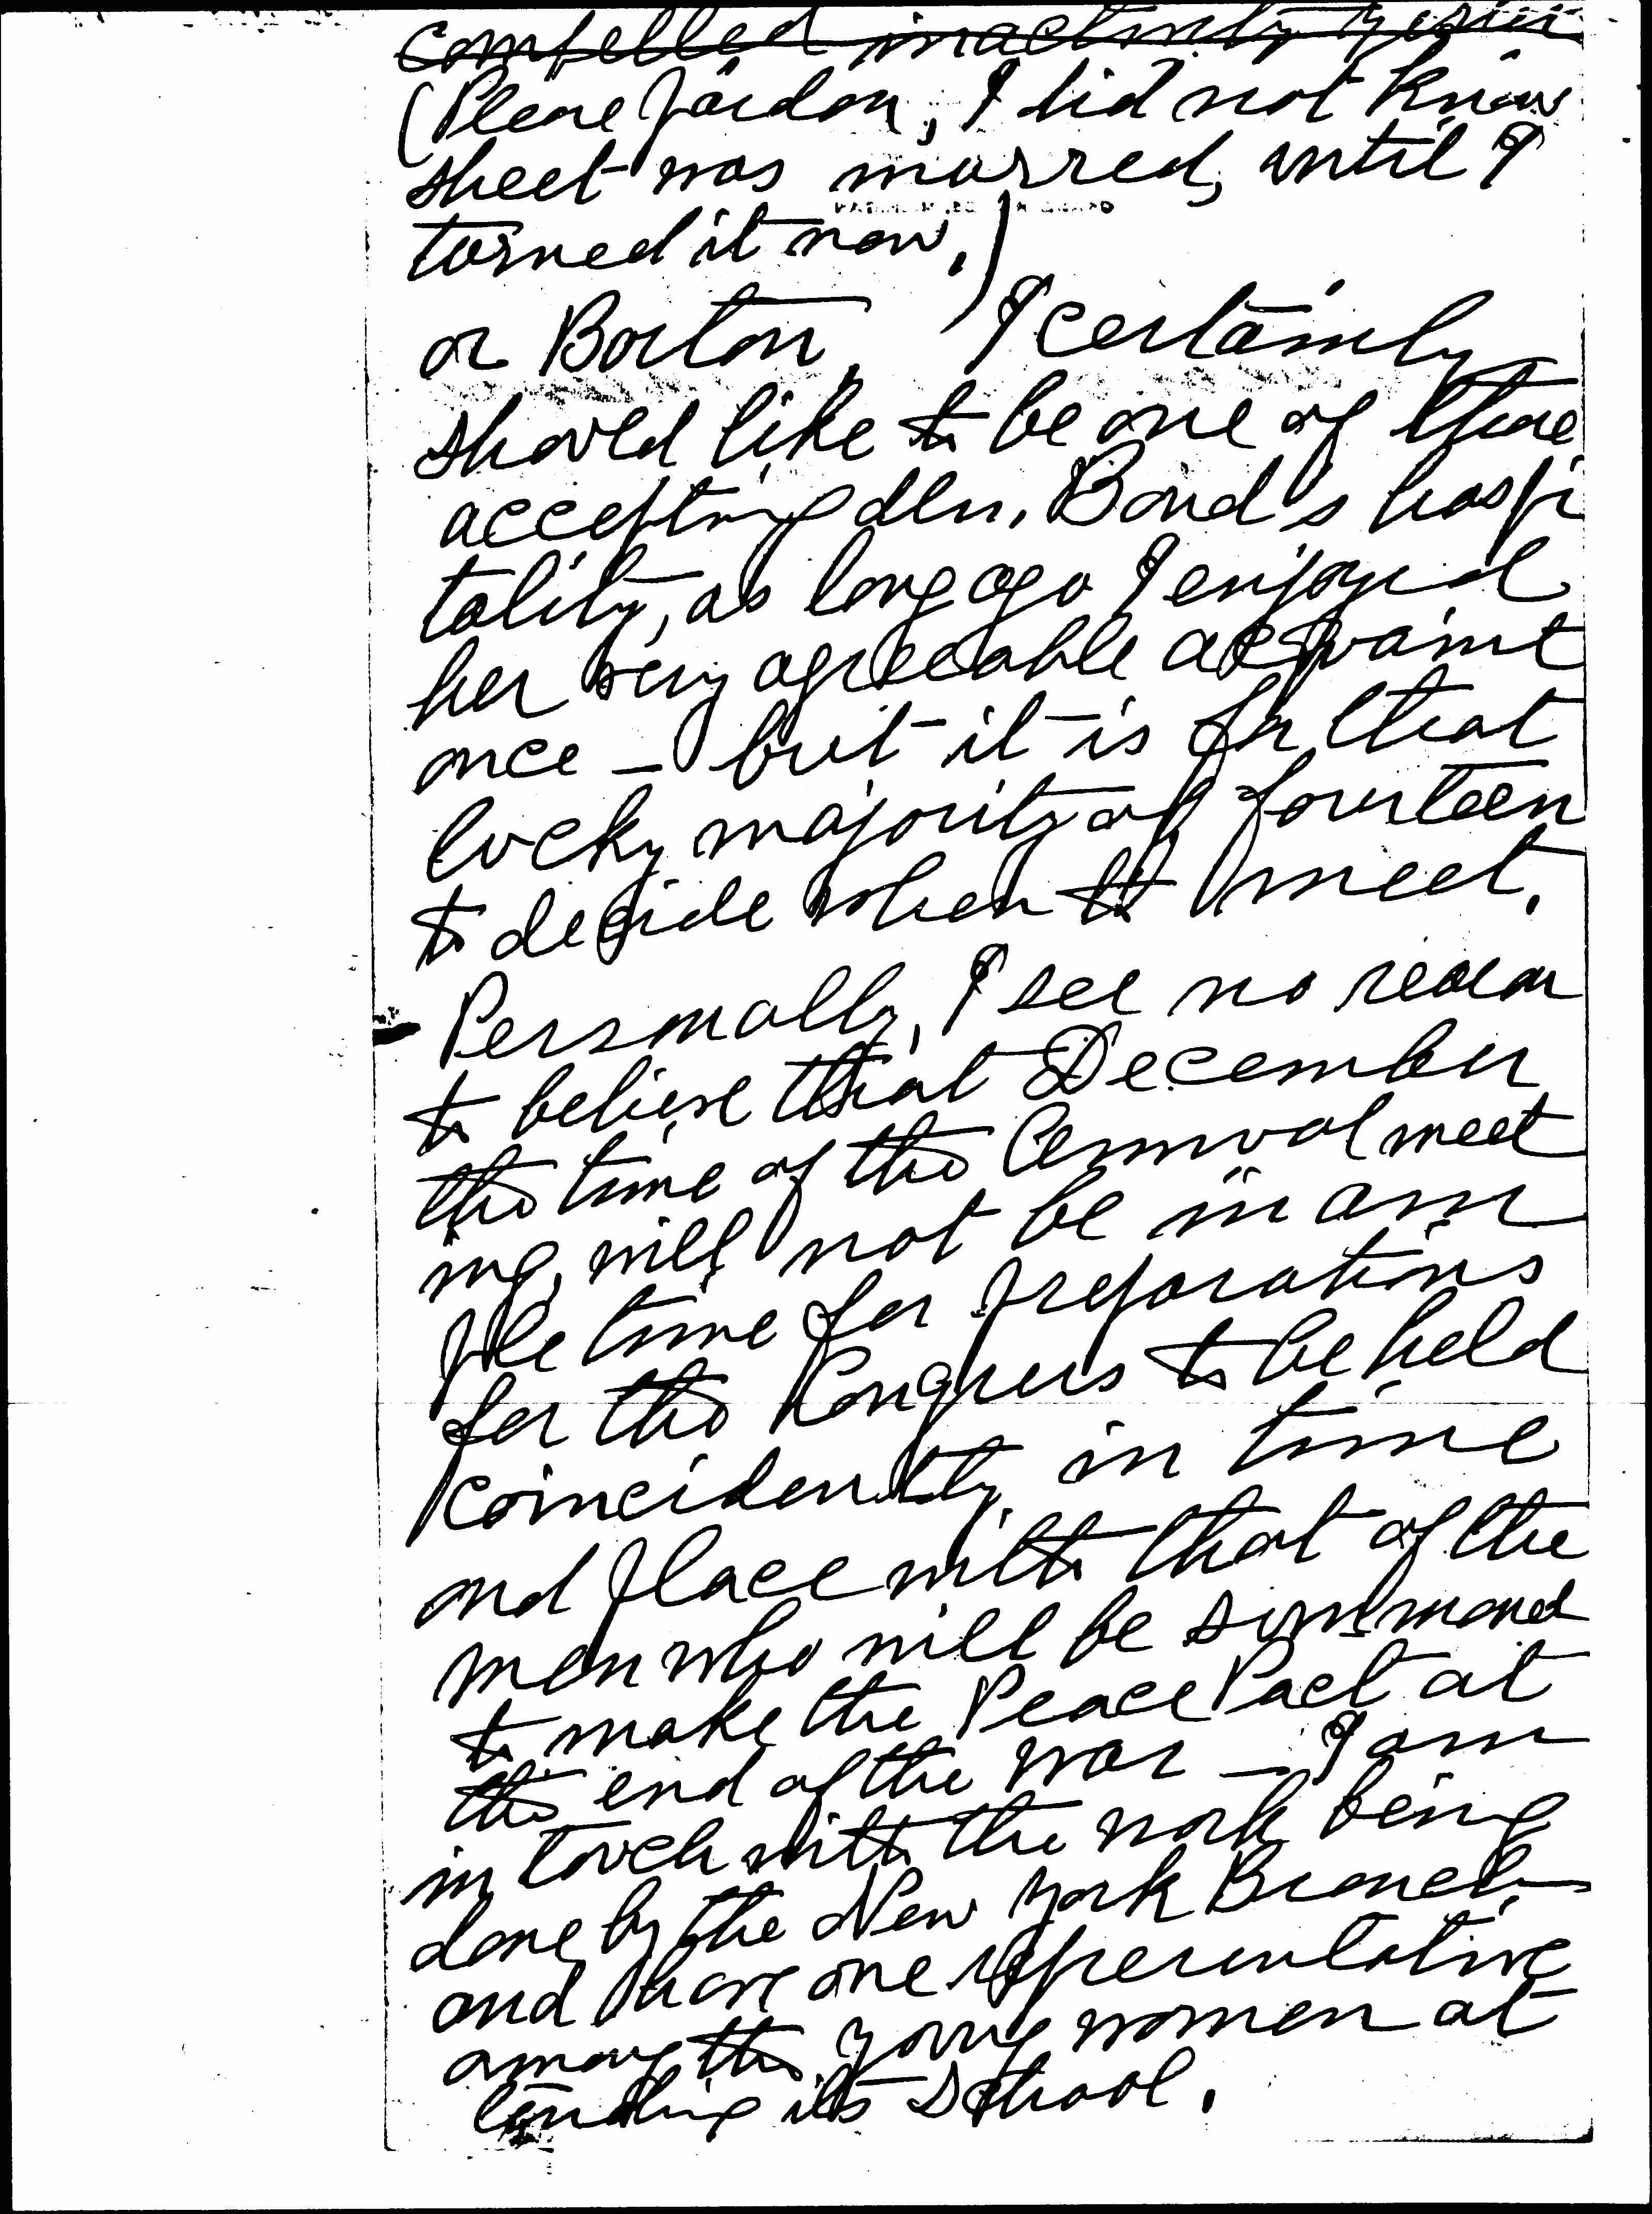 compelled inactivity
(Please pardon, I did not know
sheet was marred, until I
turned it now.)
or Boston, I certainly
should like to be one of those
accepting Mrs. Bond's hospi
tality, as long ago I enjoyed
her very agreeable acquaint
ance – but it is for that
lucky majority of fourteen
to decide when to meet.
Personally, I see no reason
to believe that December
the time of the Annual meet
ing, will not be in am
ple time for preparations
for the Congress to be held
coincidently in time
and place with that of the
men who will be summoned
to make the Peace Pact at
the end of the war – I am
in touch with the work being
done by the New York Branch
and have one representative
among the young women at
tending its School.